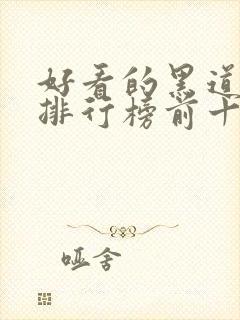 好看的黑道
排行榜前十
哑舍